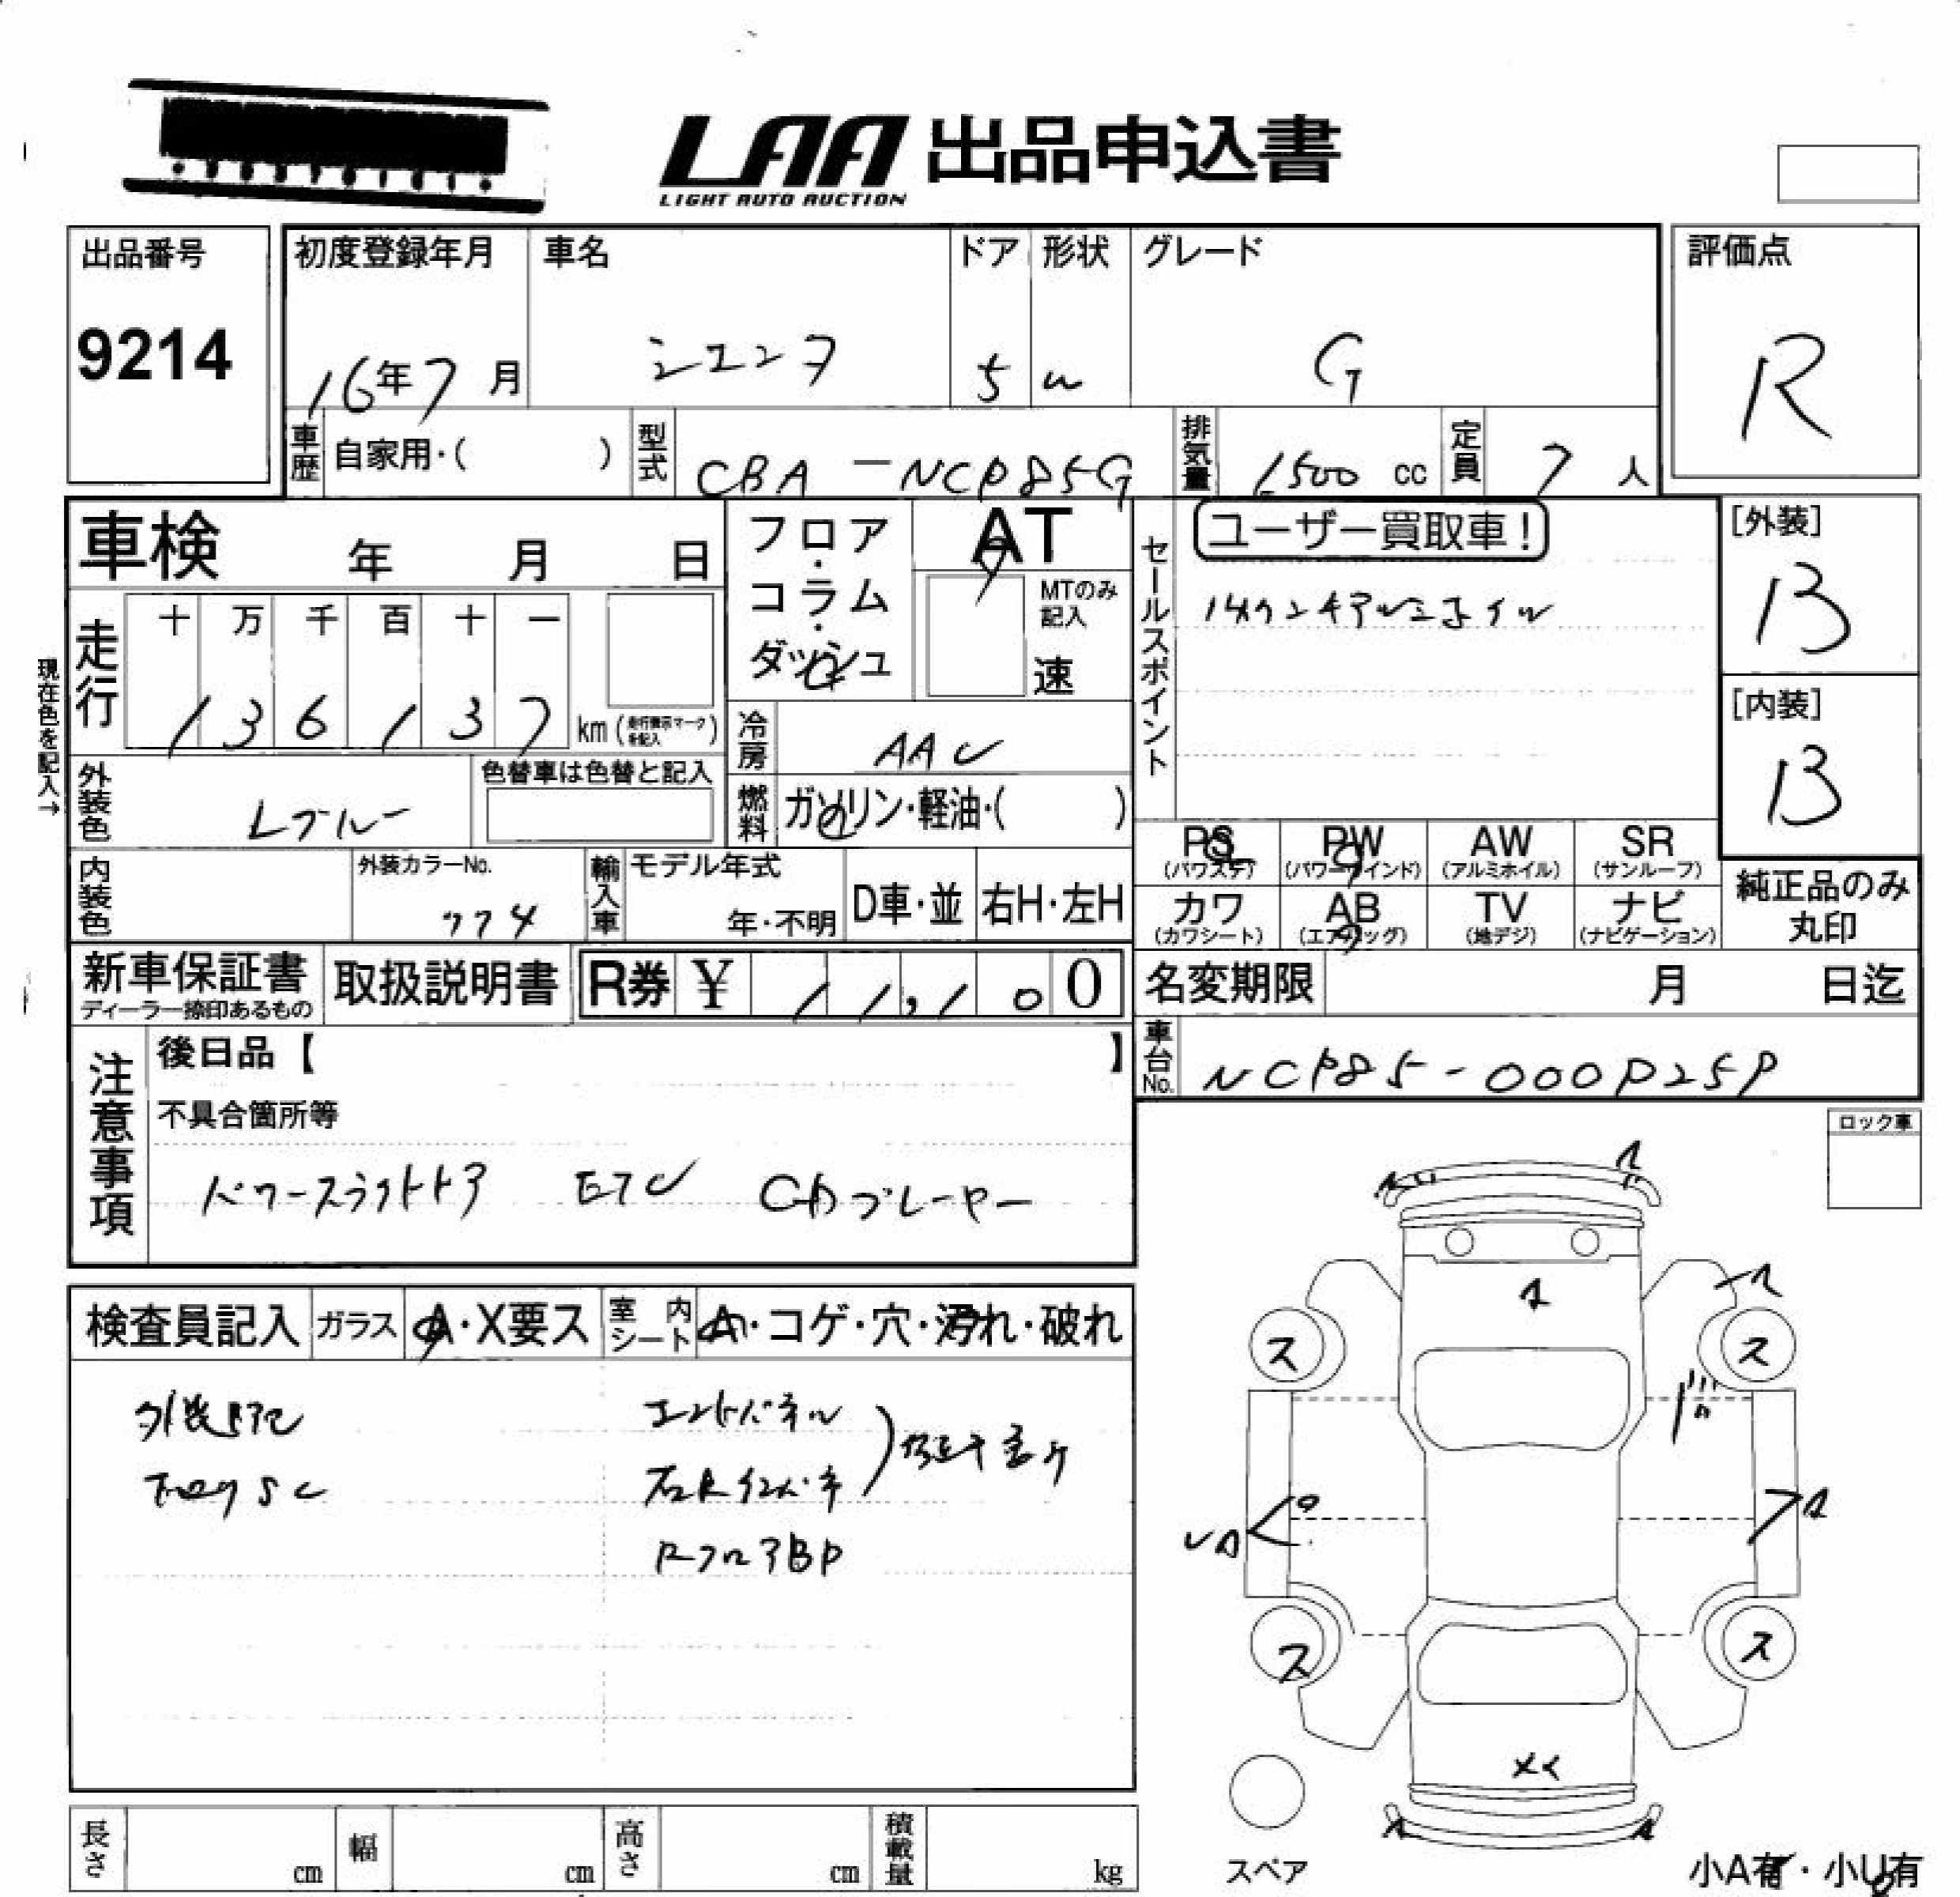 LAA 出品申込書
LIGHT AUTO AUCTION
出品番号
9214
初度登録年月 車名 ドア 形状 グレード
16年7月 シエンタ 5 W G
評価点
R
車歴 自家用・( ) 型式 CBA-NCP85G 排気量 1500 cc 定員 7 人
車検 年 月 日
フロア・コラム・ダッシュ
AT
MTのみ記入
速
セールスポイント
ユーザー買取車!
14インチアルミホイル
[外装]
B
[内装]
B
現在色を記入→
走行 十 万 千 百 十 一
1 3 6 1 3 7 km (走行表示マークを記入)
冷房 AAC
外装色 Lブルー
色替車は色替と記入
燃料 ガソリン・軽油・( )
PS PW AW SR
(パワステ) (パワーウインド) (アルミホイル) (サンルーフ)
カワ AB TV ナビ
(カワシート) (エアバッグ) (地デジ) (ナビゲーション)
純正品のみ
丸印
内装色 外装カラーNo.
774
輸入車 モデル年式
年・不明
D車・並 右H・左H
新車保証書
ディーラー捺印あるもの
取扱説明書
R券 ¥ 1 1, 1 0 0
名変期限 月 日迄
車台No.
注意事項
後日品【 】
不具合箇所等
パワースライドドア ETC CDプレーヤー
ロック車
検査員記入 ガラス A・X要ス 室内シート A・コゲ・穴・汚れ・破れ
外装
エンドパネル
右Rインパネ
RフロアBP
A
A
A
A
A
A
ス ス
ス ス
スペア
小A有・小U有
長さ cm 幅 cm 高さ cm 積載量 kg